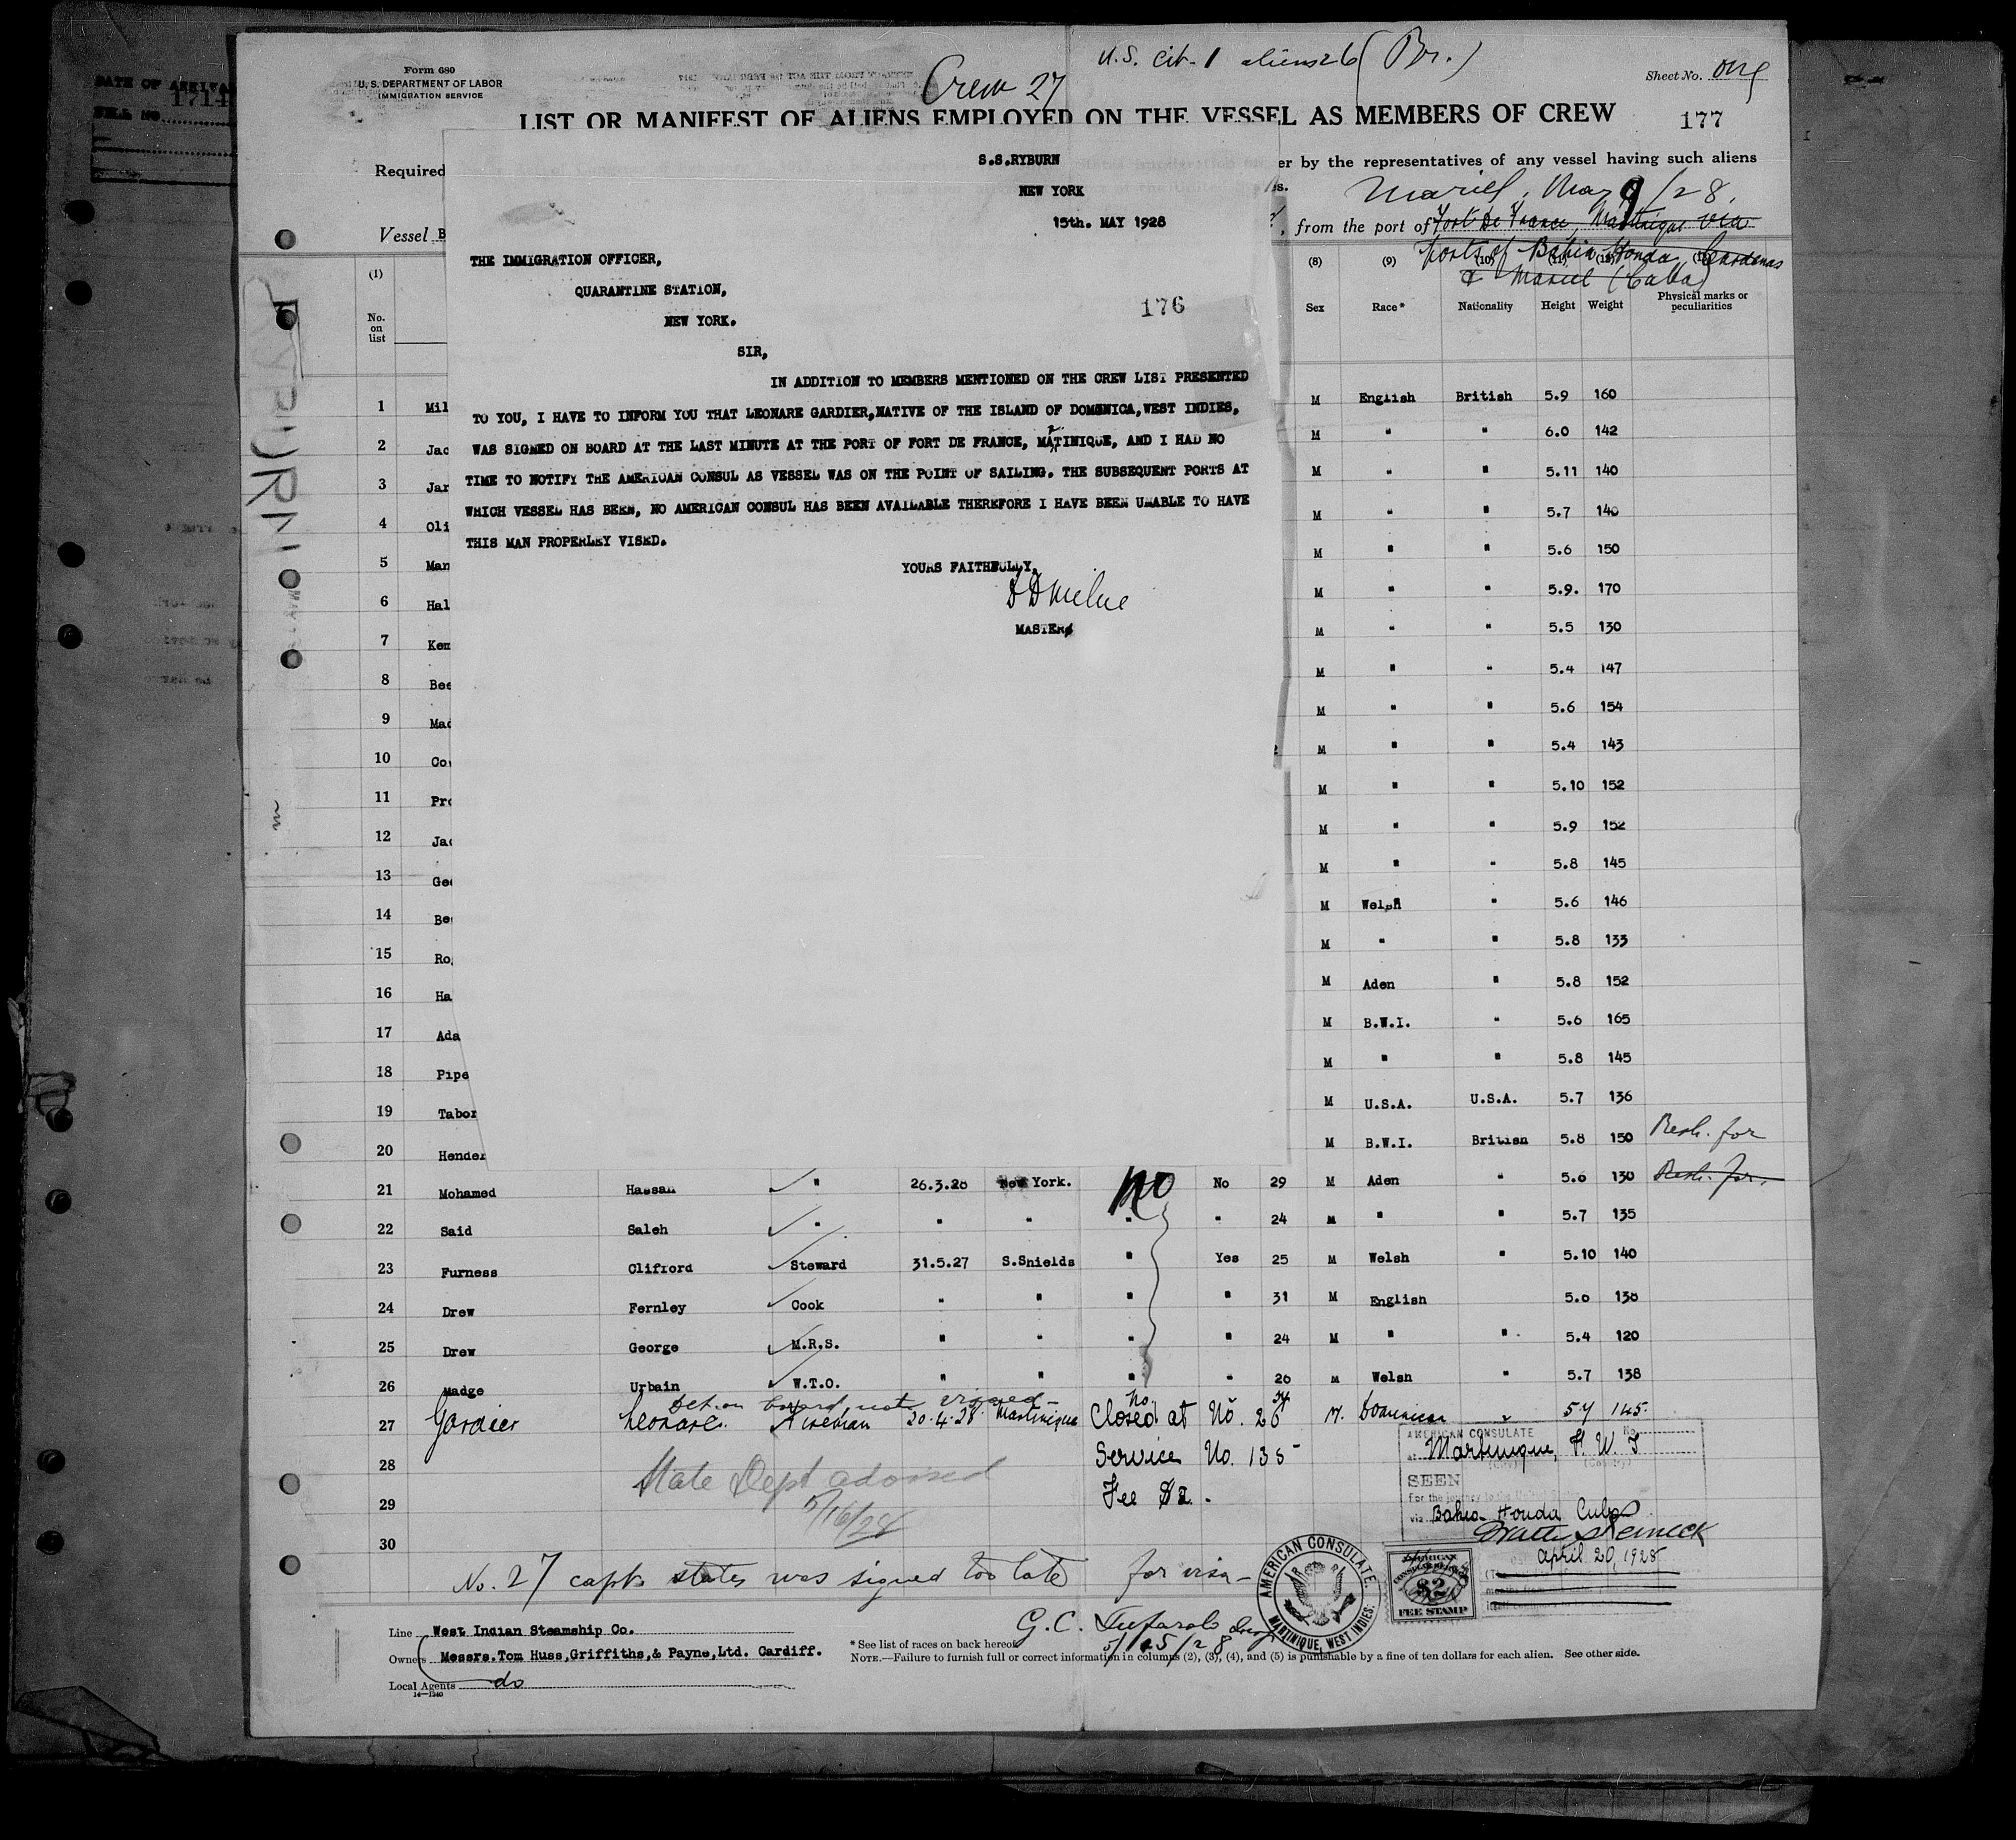 DATE OF ARRIVAL
1714
BILL NO.
Form 680
U. S. DEPARTMENT OF LABOR
IMMIGRATION SERVICE
U.S. cit- 1 aliens 26 (Br.)
Crew 27
Sheet No. one
LIST OR MANIFEST OF ALIENS EMPLOYED ON THE VESSEL AS MEMBERS OF CREW
177
Required
er by the representatives of any vessel having such aliens
Mariel, May 9/28.
Vessel B
, from the port of Fort De France, Martinique via
ports of Bahia Honda Cardenas
& Mariel (Cuba)
S.S.RYBURN
NEW YORK
15th. MAY 1928
THE IMMIGRATION OFFICER,
QUARANTINE STATION,
NEW YORK.
176
SIR,
IN ADDITION TO MEMBERS MENTIONED ON THE CREW LIST PRESENTED
TO YOU, I HAVE TO INFORM YOU THAT LEONARE GARDIER,NATIVE OF THE ISLAND OF DOMONICA,WEST INDIES,
WAS SIGNED ON BOARD AT THE LAST MINUTE AT THE PORT OF FORT DE FRANCE, MARTINIQUE, AND I HAD NO
TIME TO NOTIFY THE AMERICAN CONSUL AS VESSEL WAS ON THE POINT OF SAILING. THE SUBSEQUENT PORTS AT
WHICH VESSEL HAS BEEN, NO AMERICAN CONSUL HAS BEEN AVAILABLE THEREFORE I HAVE BEEN UNABLE TO HAVE
THIS MAN PROPERLEY VISED.
YOURS FAITHFULLY,
D D Milne
MASTER
RYBURN
(1) (8) (9) (10) (11) (12) (13)
No. on list Sex Race* Nationality Height Weight Physical marks or peculiarities
1 Mil M English British 5.9 160
2 Jac M " " 6.0 142
3 Jar M " " 5.11 140
4 Oli M " " 5.7 140
5 Man M " " 5.6 150
6 Hal M " " 5.9. 170
7 Kem M " " 5.5 130
8 Bee M " " 5.4 147
9 Mac M " " 5.6 154
10 Co M " " 5.4 143
11 Pro M " " 5.10 152
12 Jac M " " 5.9 152
13 Ge M " " 5.8 145
14 Be M Welsh " 5.6 146
15 Ro M " " 5.8 133
16 Ha M Aden " 5.8 152
17 Ada M B.W.I. " 5.6 165
18 Pipe M " " 5.8 145
19 Tabor M U.S.A. U.S.A. 5.7 136
20 Hender M B.W.I. British 5.8 150
21 Mohamed Hassan " 26.3.28 New York. no No 29 M Aden " 5.6 130
22 Said Saleh " " " " " 24 M " " 5.7 135
23 Furness Clifford Steward 31.5.27 S.Shields " Yes 25 M Welsh " 5.10 140
24 Drew Fernley Cook " " " " 31 M English 5.6 138
25 Drew George M.R.S. " " " " 24 M " " 5.4 120
26 Madge Urbain W.T.O. " " " " 26 M Welsh " 5.7 138
Det. on board not visaed -
27 Gardier Leonare. Fireman 20.4.28 Martinique no No. 26 M. Dominica " 5 7 145.
Closed at
28 Service No. 135
29 Fee $2.
30
State Dept advised
5/16/28
AMERICAN CONSULATE No.
at Martinique, F. W. I
(City) (Country)
SEEN
For the journey to the United States
via Bahia Honda Cuba
April 20, 1928
No. 27 capt. states was signed too late for visa-
AMERICAN CONSULATE.
MARTINIQUE, WEST INDIES.
AMERICAN
$2
FEE STAMP
5/15/28
Line West Indian Steamship Co.
Owners Messrs.Tom Huss,Griffiths,& Payne,Ltd. Cardiff.
Local Agents do
14—1240
* See list of races on back hereof.
NOTE.—Failure to furnish full or correct information in columns (2), (3), (4), and (5) is punishable by a fine of ten dollars for each alien. See other side.